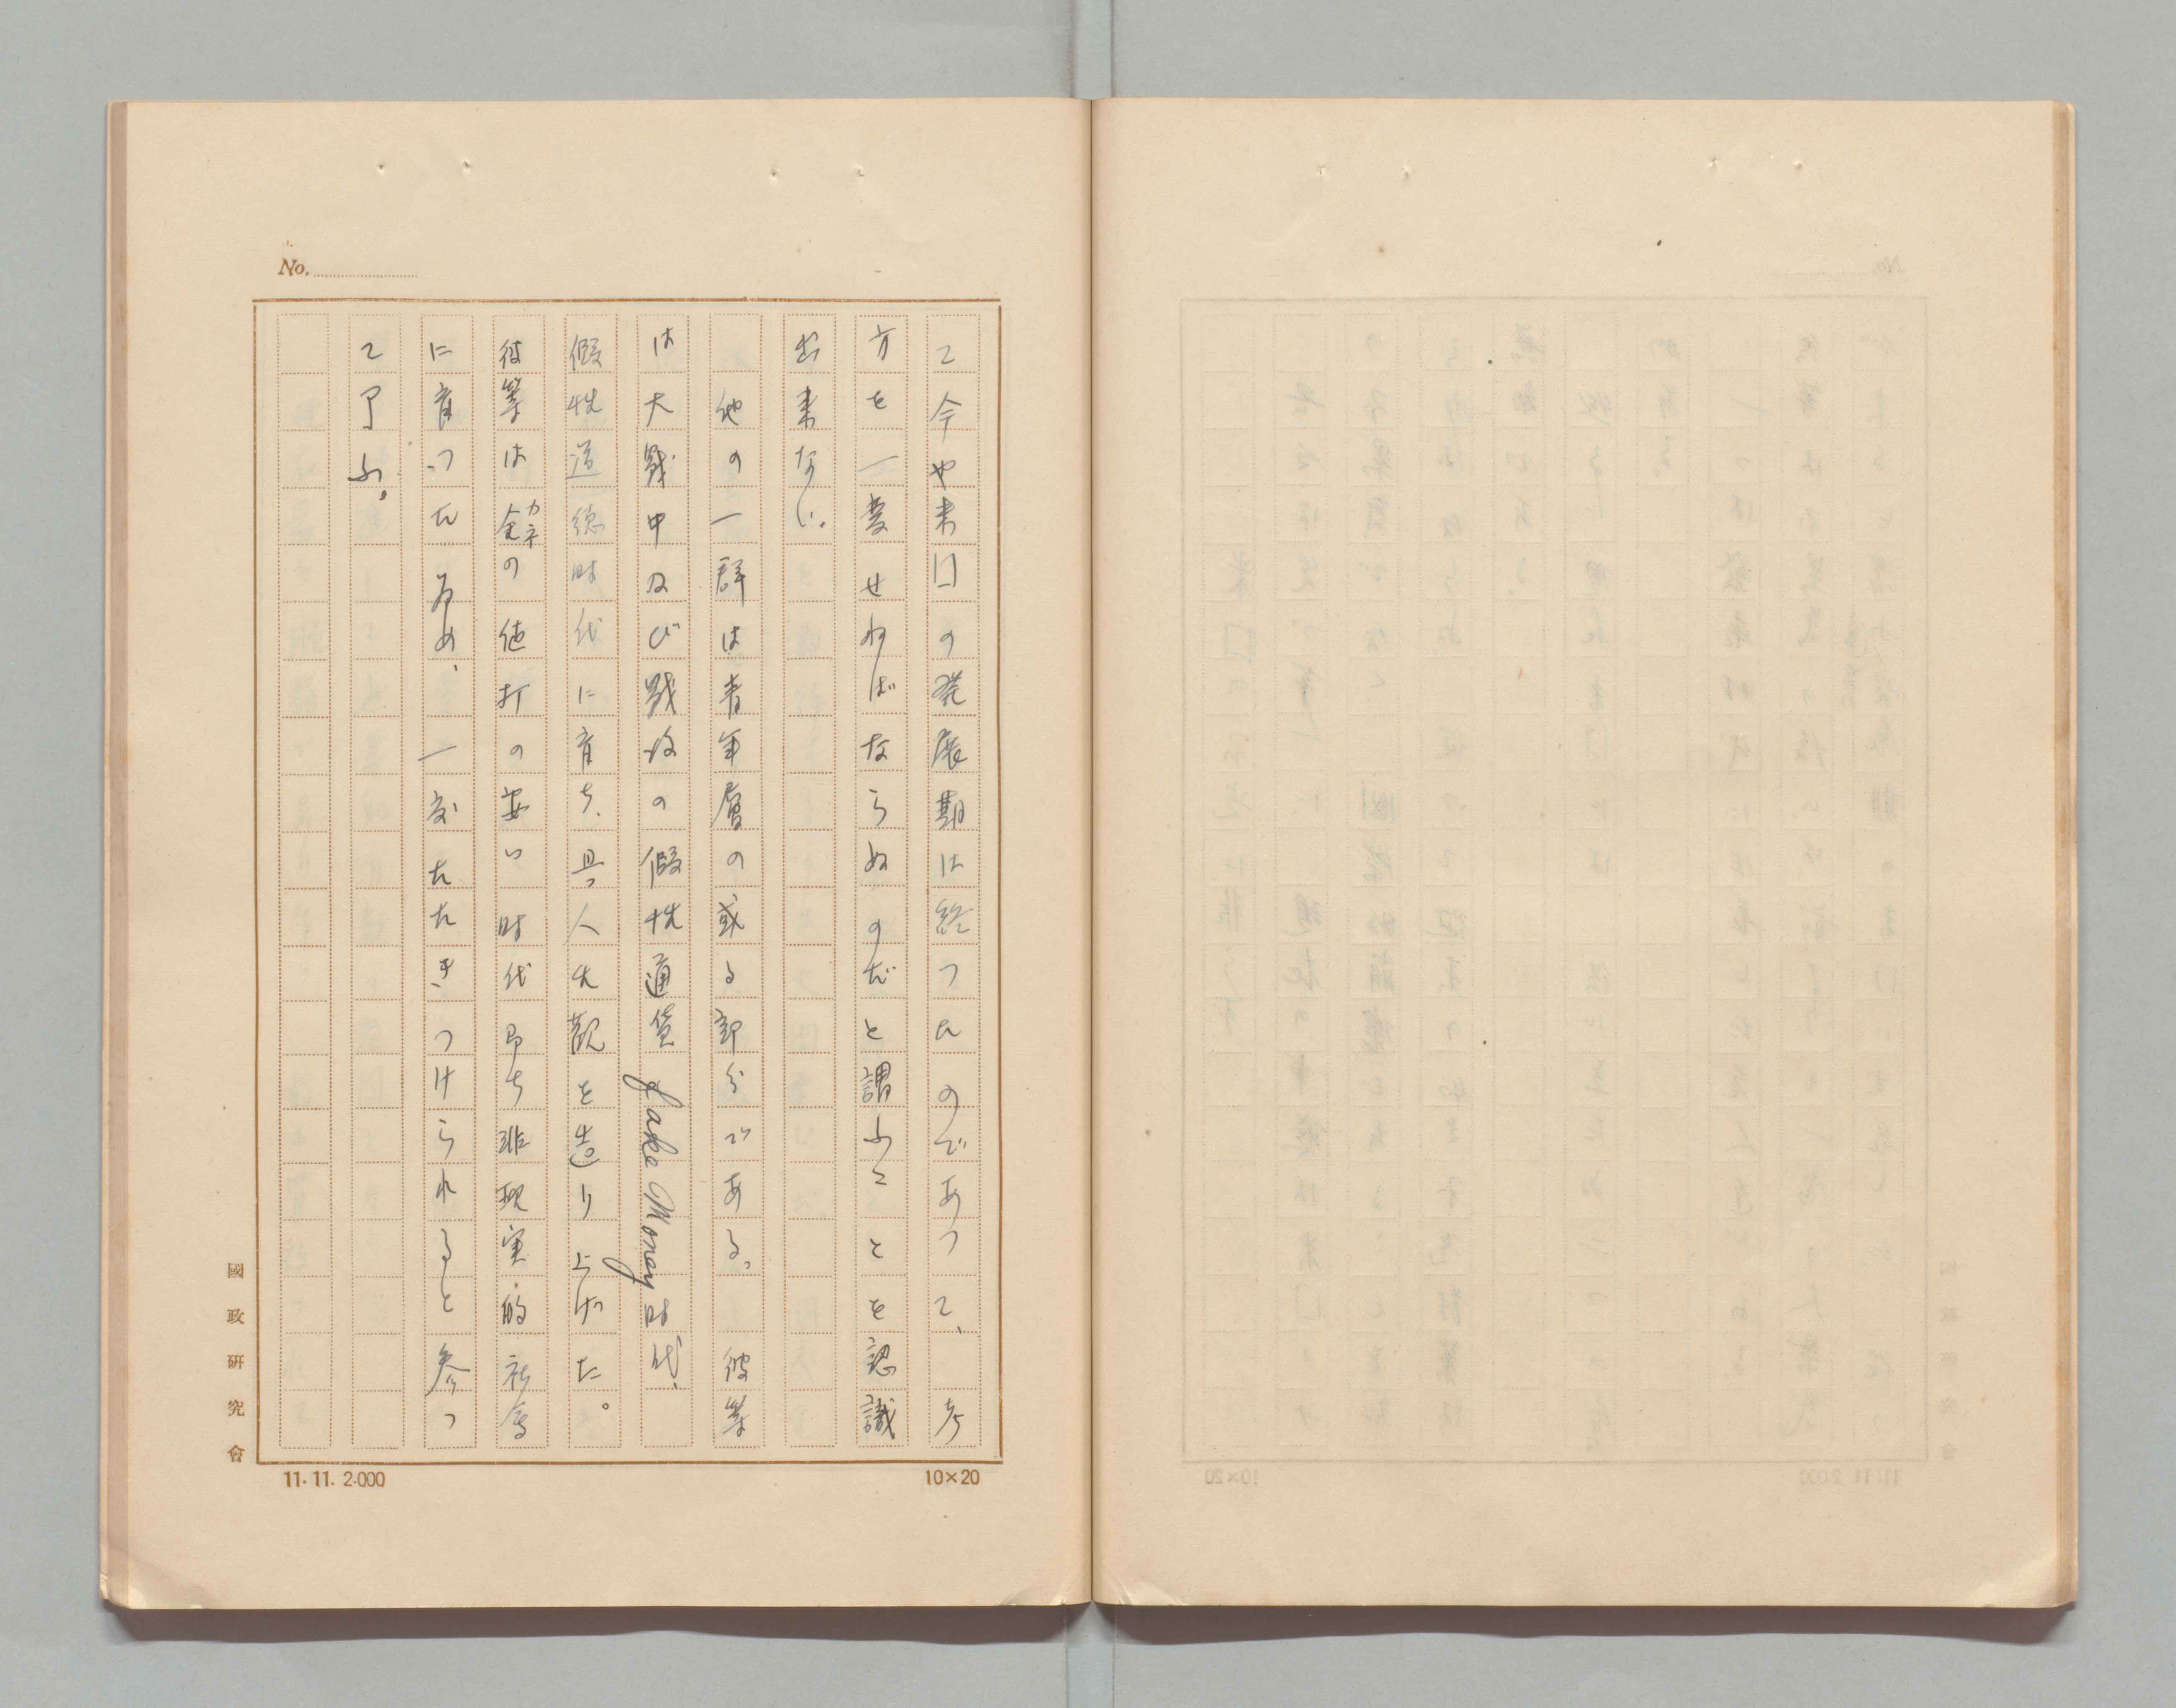 No.
て今や米国の発展期は終つたのであつて、考
方を一変せねばならぬのだと謂ふことを認識
出来ない。
他の一群は青年層の或る部分である。彼等
は大戦中及び戦後の假性通貨 fake Money 時代、
假性道徳時代に育ち、且つ人生観を造り上げた。
彼等は金カネの値打の安い時代即ち非現実的社会
に育つたゝめ、一度たたきつけられると参つ
て了ふ。
國政研究會
11.11. 2.000
10×20